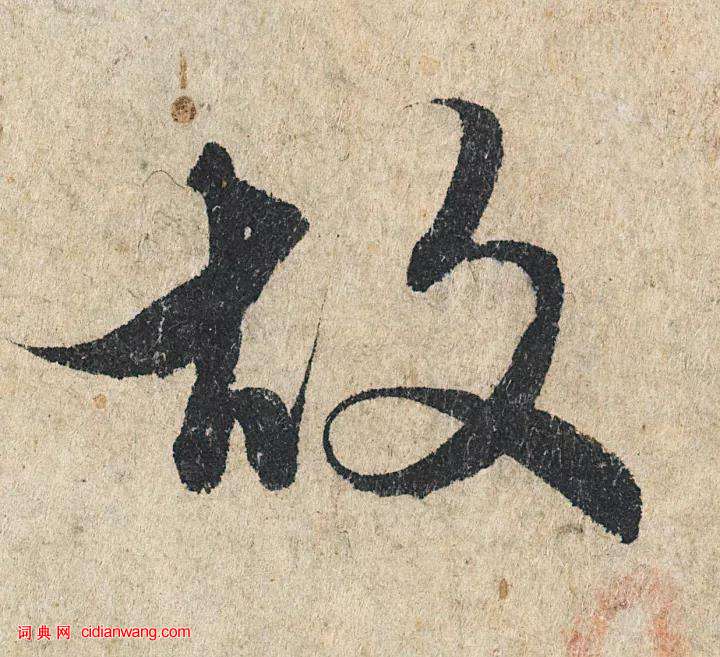 散
词典网 cidianwang.com